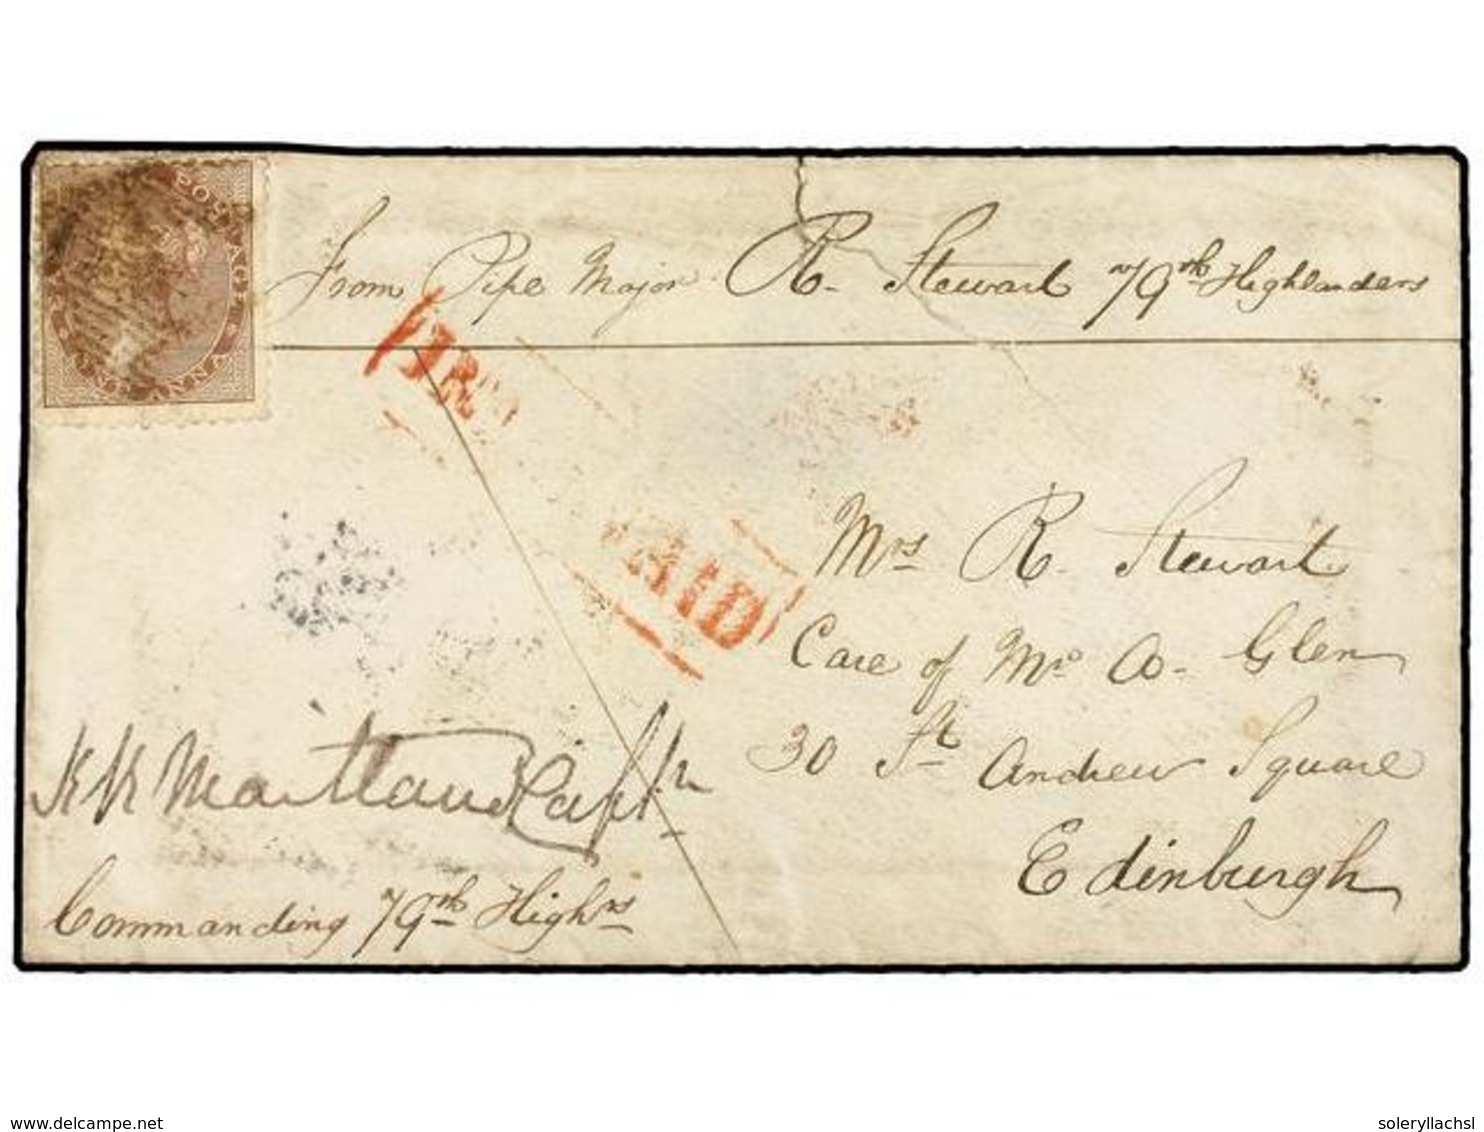 POSTAGE
ONE ANNA
From Pipe Major R. Stewart 79th Highlanders
PAID
Mrs R. Stewart
Care of Mr A. Glen
30 St Andrew Square
Edinburgh
Maitland Captn
Commanding 79th Highrs
delcampe.net
soleryllachsl